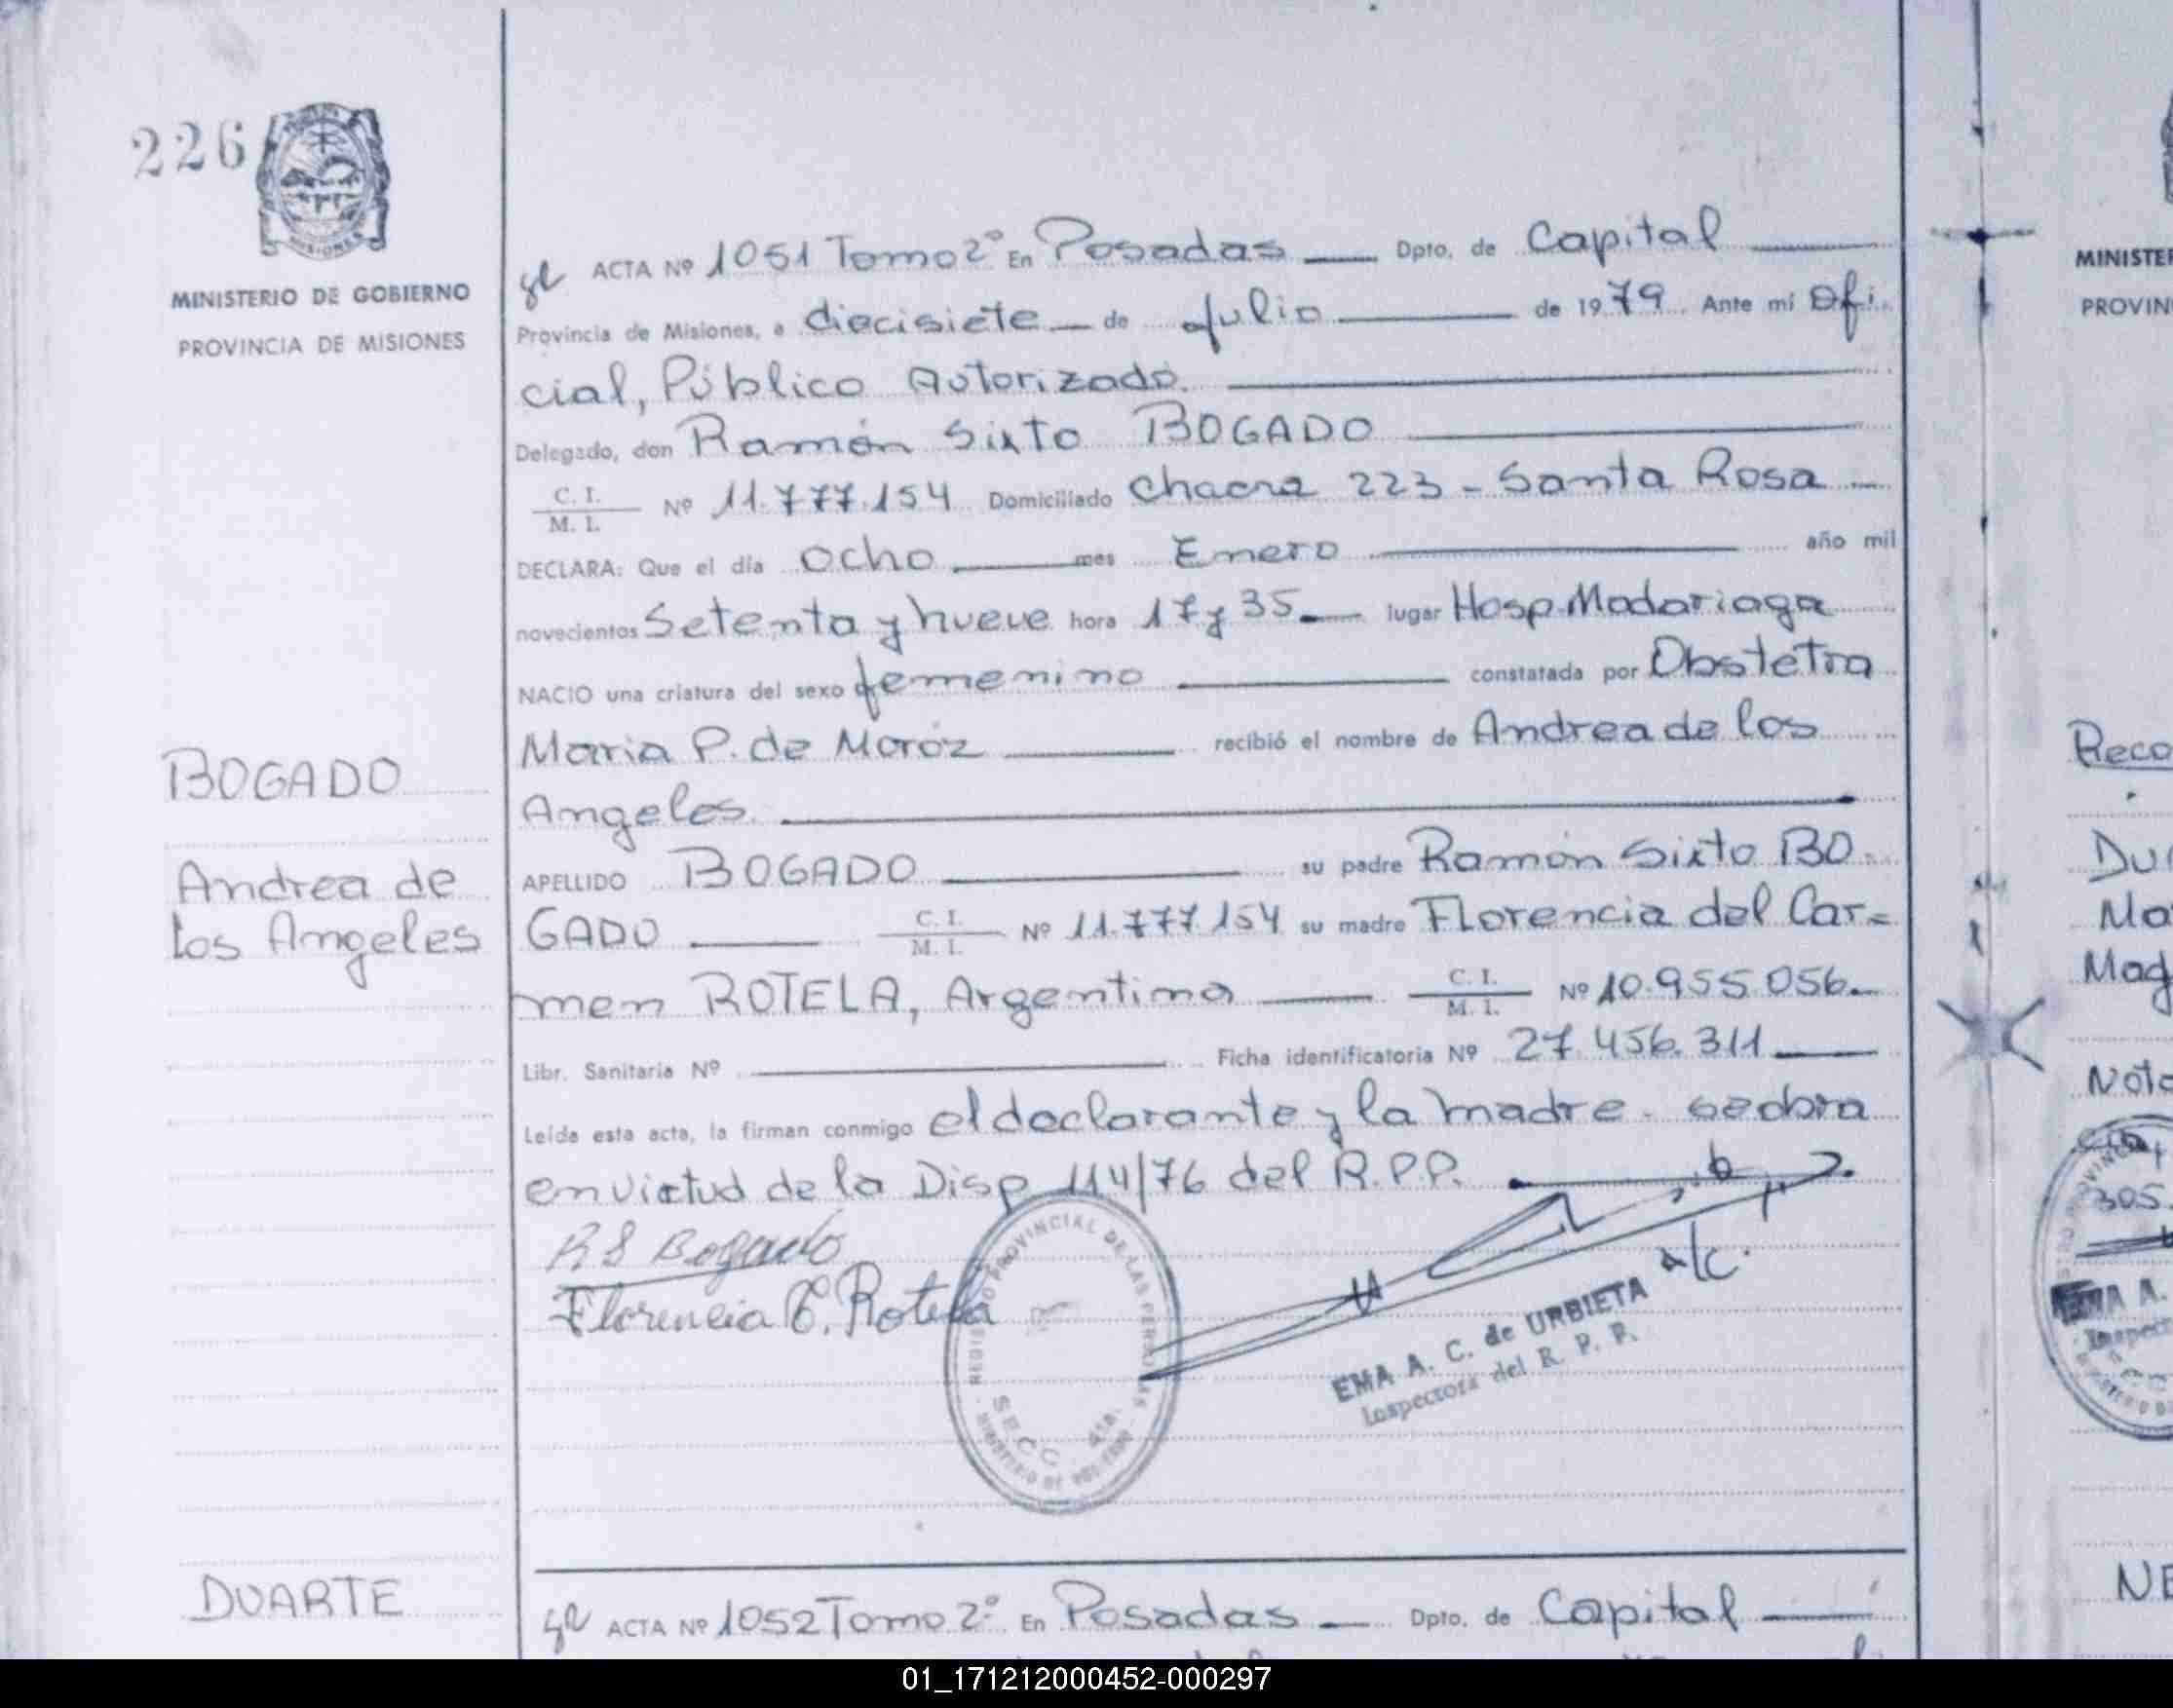 226
MINISTERIO DE GOBIERNO
PROVINCIA DE MISIONES
BOGADO
Andrea de
los Angeles
DUARTE
ACTA Nº 1051 Tomo 2º En Posadas Dpto. de Capital
Provincia de Misiones, a diecisiete de Julio de 1979 Ante mí Ofi
cial, Público Autorizado.
Delegado, don Ramón Sixto BOGADO
C. I.
M. I. Nº 11.777.154 Domiciliado Chacra 223 - Santa Rosa
DECLARA: Que el día ocho mes Enero año mil
novecientos Setenta y nueve hora 17 y 35 lugar Hosp. Madariaga
NACIO una criatura del sexo femenino constatada por Obstetra
Maria P. de Moroz recibió el nombre de Andrea de los
Angeles.
APELLIDO BOGADO su padre Ramón Sixto BO
GADO C. I. M. I. Nº 11.777.154 su madre Florencia del Car=
men ROTELA, Argentina C. I. M. I. Nº 10.955.056
Libr. Sanitaria Nº Ficha identificatoria Nº 27.456.311
Leída esta acta, la firman conmigo el declarante y la madre - se obra
en victud de la Disp 114/76 del R.P.P.
RS Bogado
Florencia C. Rotela
REGISTRO PROVINCIAL DE LAS PERSONAS
SECC. 4ta.
MINISTERIO DE GOBIERNO
a/c.
EMA A. C. de URBIETA
Inspectora del R. P. P.
ACTA Nº 1052 Tomo 2º En Posadas Dpto. de Capital
MINISTER
PROVIN
Reco
Du
Ma
Mag
Nota
305.
EMA A.
Inspect
NE
01_171212000452-000297